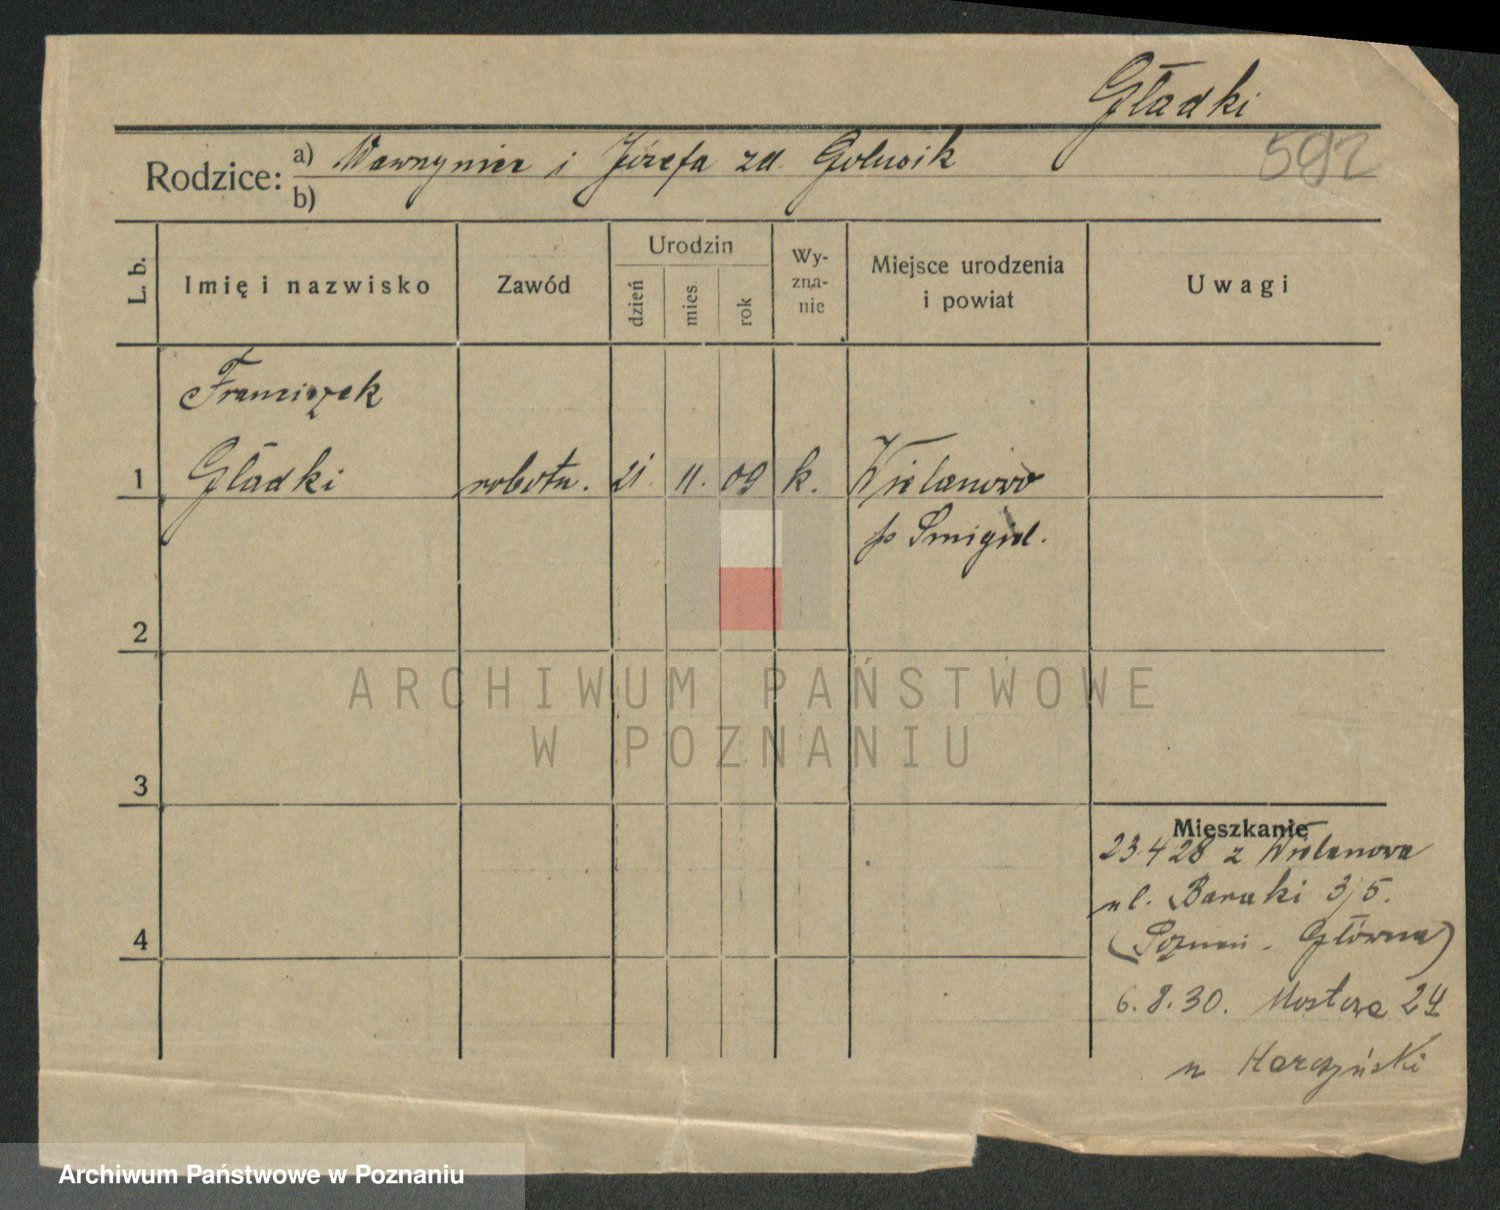 Gładki
592
Rodzice: a) Wawrzyniec i Józefa zd. Golusik
b)
L. b.
Imię i nazwisko
Zawód
Urodzin
dzień
mies.
rok
Wy-
zna-
nie
Miejsce urodzenia
i powiat
Uwagi
Franciszek
1 Gładki robotn. 21. 11. 09 k. Wielanowo
p Śmigiel.
2
ARCHIWUM PAŃSTWOWE
W POZNANIU
3
Mieszkanie
23.4 28 z Wielanowa
ul. Baraki 3/5.
4
(Poznań - Główna)
6.8.30. Mostowa 24
u Harczyński
Archiwum Państwowe w Poznaniu